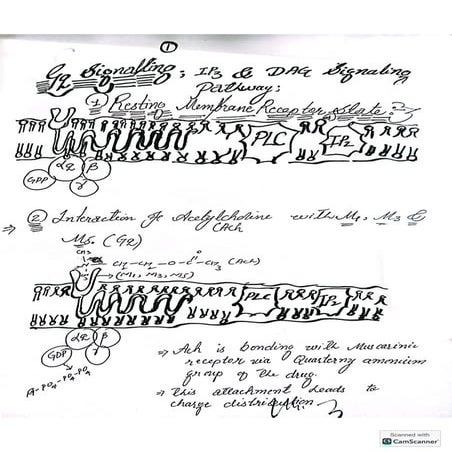 ①
Gq Signalling; IP3 & DAG Signaling
Pathway:
① Resting Membrane Receptor state:-
PLC
IP2
αq β
GDP γ
⇒ ② Interaction of Acetylcholine with M1, M3 &
M5. (Gq) (Ach
CH3
CH2-CH2-O-C-CH3 (Ach)
→(M1, M3, M5)
PLC
αq β
GDP γ
PO4-PO4-PO4
⇒ Ach is bonding with Muscarinic
receptor via Quarterny amonium
group of the drug.
⇒ this attachment leads to
charge distribution
Scanned with
CS CamScanner